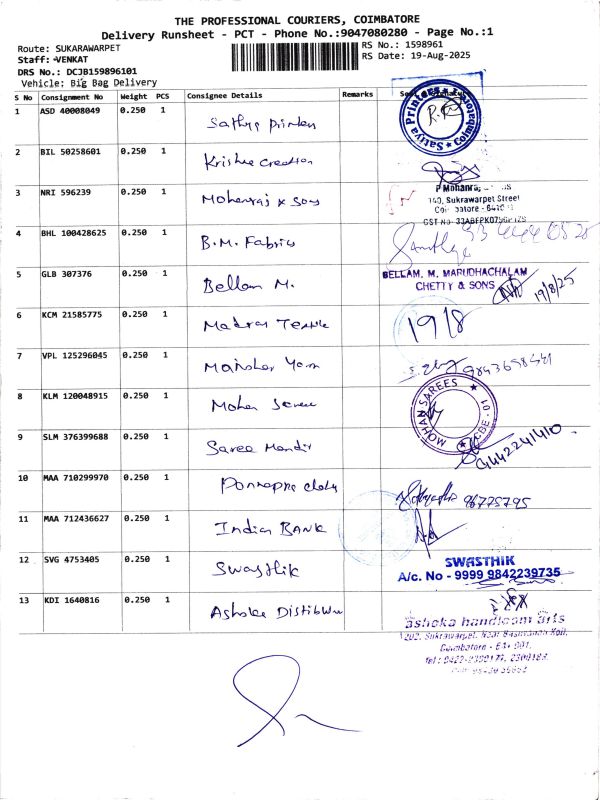 THE PROFESSIONAL COURIERS, COIMBATORE
Delivery Runsheet - PCT - Phone No.:9047080280 - Page No.:1
Route: SUKARAWARPET
RS No.: 1598961
Staff: VENKAT
RS Date: 19-Aug-2025
DRS No.: DCJB159896101
Vehicle: Big Bag Delivery
S No Consignment No Weight PCS Consignee Details Remarks
1 ASD 40008049 0.250 1 Sathya Printers
Satya Printers Coimbatore
2 BIL 50258601 0.250 1 Krishna Creation
3 NRI 596239 0.250 1 Mohanraj & Sons
P Mohanraj
140, Sukrawarpet Street
4 BHL 100428625 0.250 1 B.M. Fabrics
5 GLB 307376 0.250 1 Bellam M.
BELLAM. M. MARUDHACHALAM
CHETTY & SONS
19/8/25
6 KCM 21585775 0.250 1 Madras Textile
19/8
7 VPL 125296045 0.250 1 Manshar Yarn
8 KLM 120048915 0.250 1 Mohan Sarees
MOHAN SAREES CBE-01
9 SLM 376399688 0.250 1 Saree Mandir
10 MAA 710299970 0.250 1 Ponnappa
11 MAA 712436627 0.250 1 Indian BANK
12 SVG 4753405 0.250 1 Swasthik
SWASTHIK
A/c. No - 9999 9842239735
13 KDI 1640816 0.250 1 Ashoka Distibutr
ashoka handloom arts